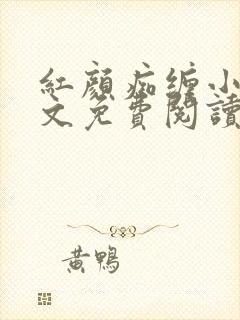 紅顏痴纏小
文免費閱讀
黃鴨